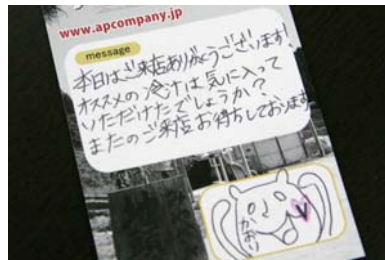 www.apcompany.jp
message
本日はご来店ありがとうございます!
オススメの冷汁は気に入って
いただけたでしょうか?
またのご来店お待ちしております
かおり